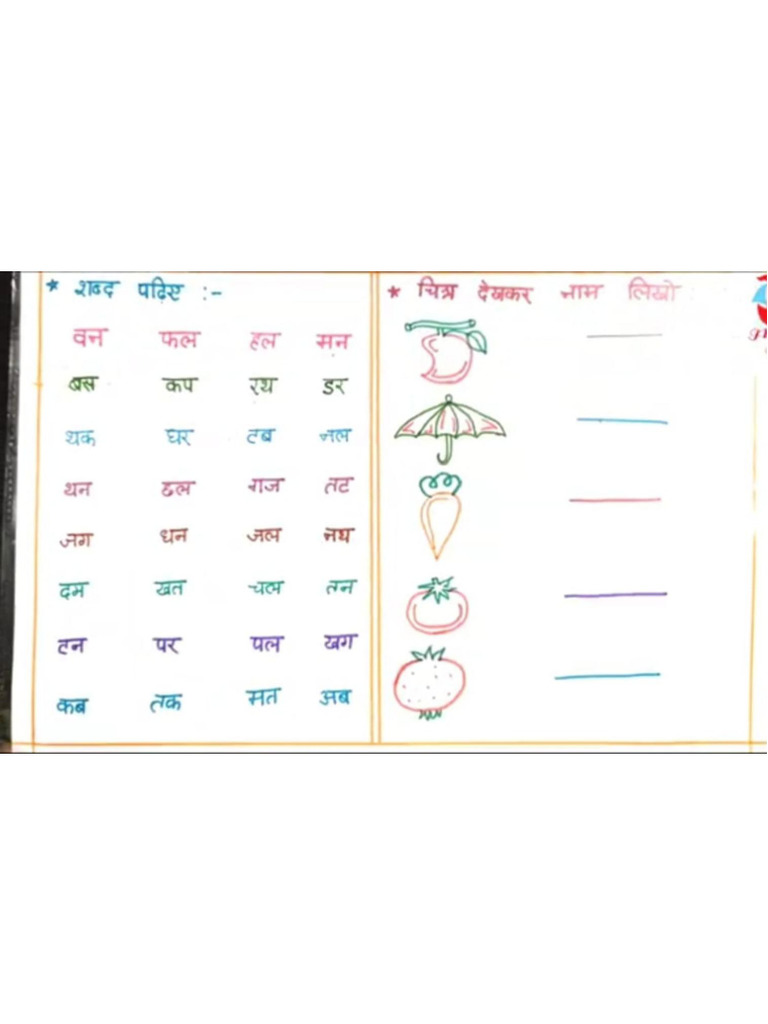 * शब्द पढ़िए :-
वन फल हल मन
बस कप रथ डर
थक घर टब नल
थन ढल गज तट
जग धन जल नथ
दम खत चल तन
टन पर पल खग
कब तक मत अब
* चित्र देखकर नाम लिखो :